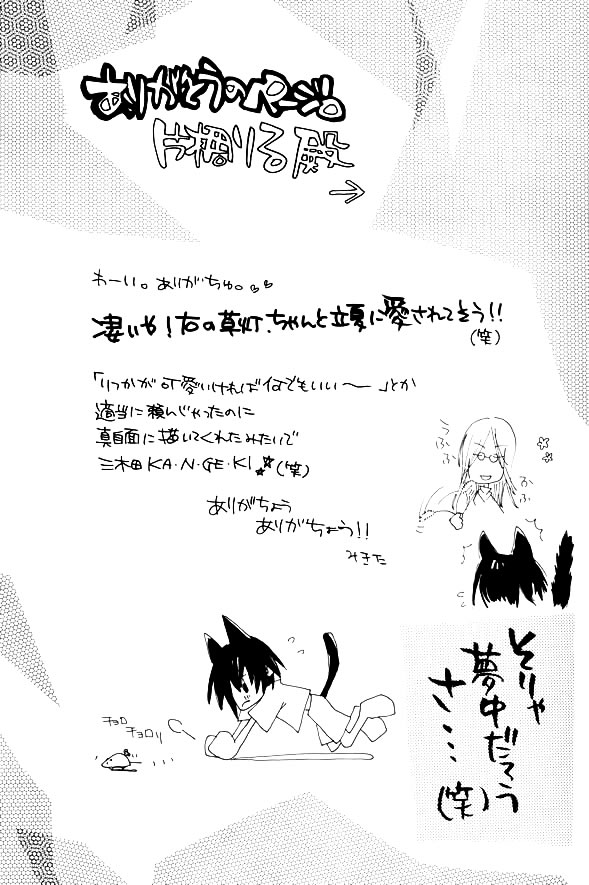 ありがとうのページ。
片桐りる殿
→
わーい。ありがちゅ。
凄いや!右の草灯ちゃんと立夏に愛されてそう!!
(笑)
「りっかが可愛いければ何でもいい〜」とか
適当に頼んじゃったのに
真面目に描いてくれたみたいで
三木田KA・N・GE・KI(笑)
ありがちょう
ありがちょう!!
みきた
うふふ
ふふ
チョロ
チョロリ
そりゃ
夢中だてう
さ…
(笑)